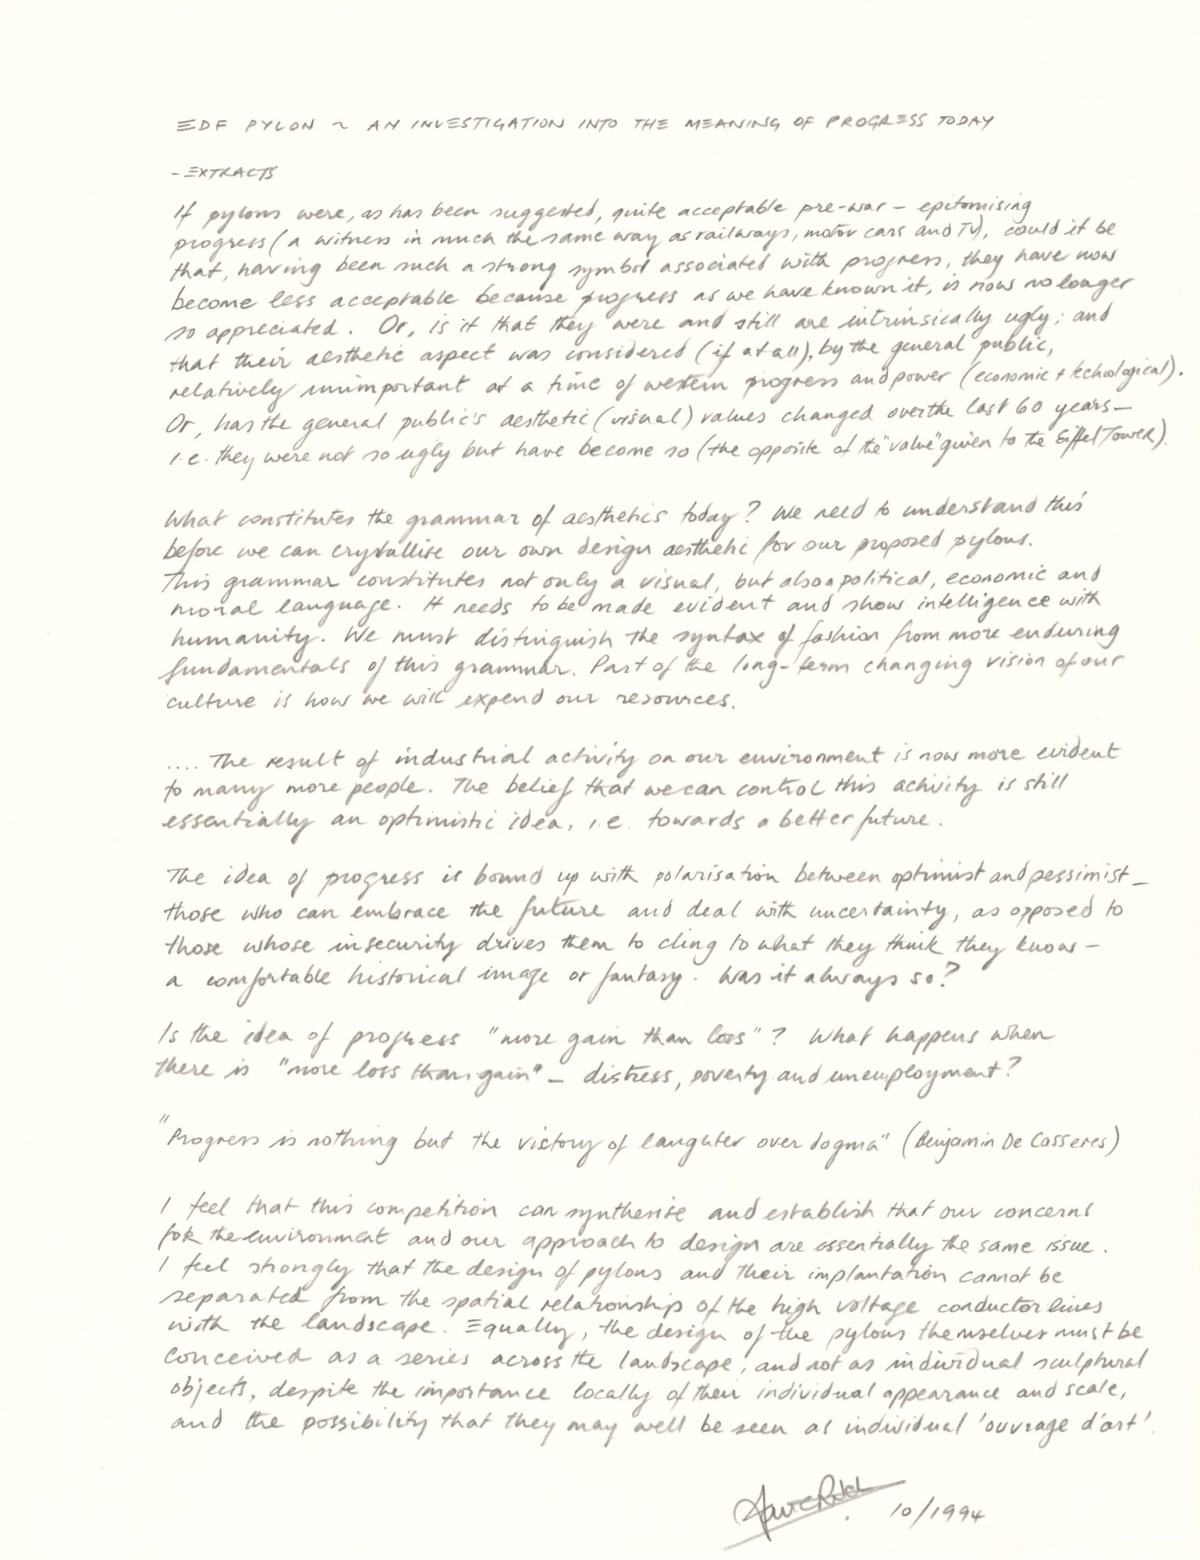 EDF PYLON ~ AN INVESTIGATION INTO THE MEANING OF PROGRESS TODAY
- EXTRACTS
If pylons were, as has been suggested, quite acceptable pre-war – epitomising
progress (a witness in much the same way as railways, motor cars and TV), could it be
that, having been such a strong symbol associated with progress, they have now
become less acceptable because progress as we have known it, is now no longer
so appreciated. Or, is it that they were and still are intrinsically ugly; and
that their aesthetic aspect was considered (if at all), by the general public,
relatively unimportant at a time of western progress and power (economic + techological).
Or, has the general public's aesthetic (visual) values changed over the last 60 years –
i.e. they were not so ugly but have become so (the opposite of the "value" given to the Eiffel Tower).
What constitutes the grammar of aesthetics today? We need to understand this
before we can crystallise our own design aesthetic for our proposed pylons.
This grammar constitutes not only a visual, but also a political, economic and
moral language. It needs to be made evident and show intelligence with
humanity. We must distinguish the syntax of fashion from more enduring
fundamentals of this grammar. Part of the long-term changing vision of our
culture is how we will expend our resources.
.... The result of industrial activity on our environment is now more evident
to many more people. The belief that we can control this activity is still
essentially an optimistic idea, i.e. towards a better future.
The idea of progress is bound up with polarisation between optimist and pessimist –
those who can embrace the future and deal with uncertainty, as opposed to
those whose insecurity drives them to cling to what they think they know –
a comfortable historical image or fantasy. Was it always so?
Is the idea of progress "more gain than loss"? What happens when
there is "more loss than gain" – distress, poverty and unemployment?
"Progress is nothing but the victory of laughter over dogma" (Benjamin De Casseres)
I feel that this competition can synthesise and establish that our concerns
for the environment and our approach to design are essentially the same issue.
I feel strongly that the design of pylons and their implantation cannot be
separated from the spatial relationship of the high voltage conductor lines
with the landscape. Equally, the design of the pylons themselves must be
conceived as a series across the landscape, and not as individual sculptural
objects, despite the importance locally of their individual appearance and scale,
and the possibility that they may well be seen as individual 'ouvrage d'art'.
10/1994